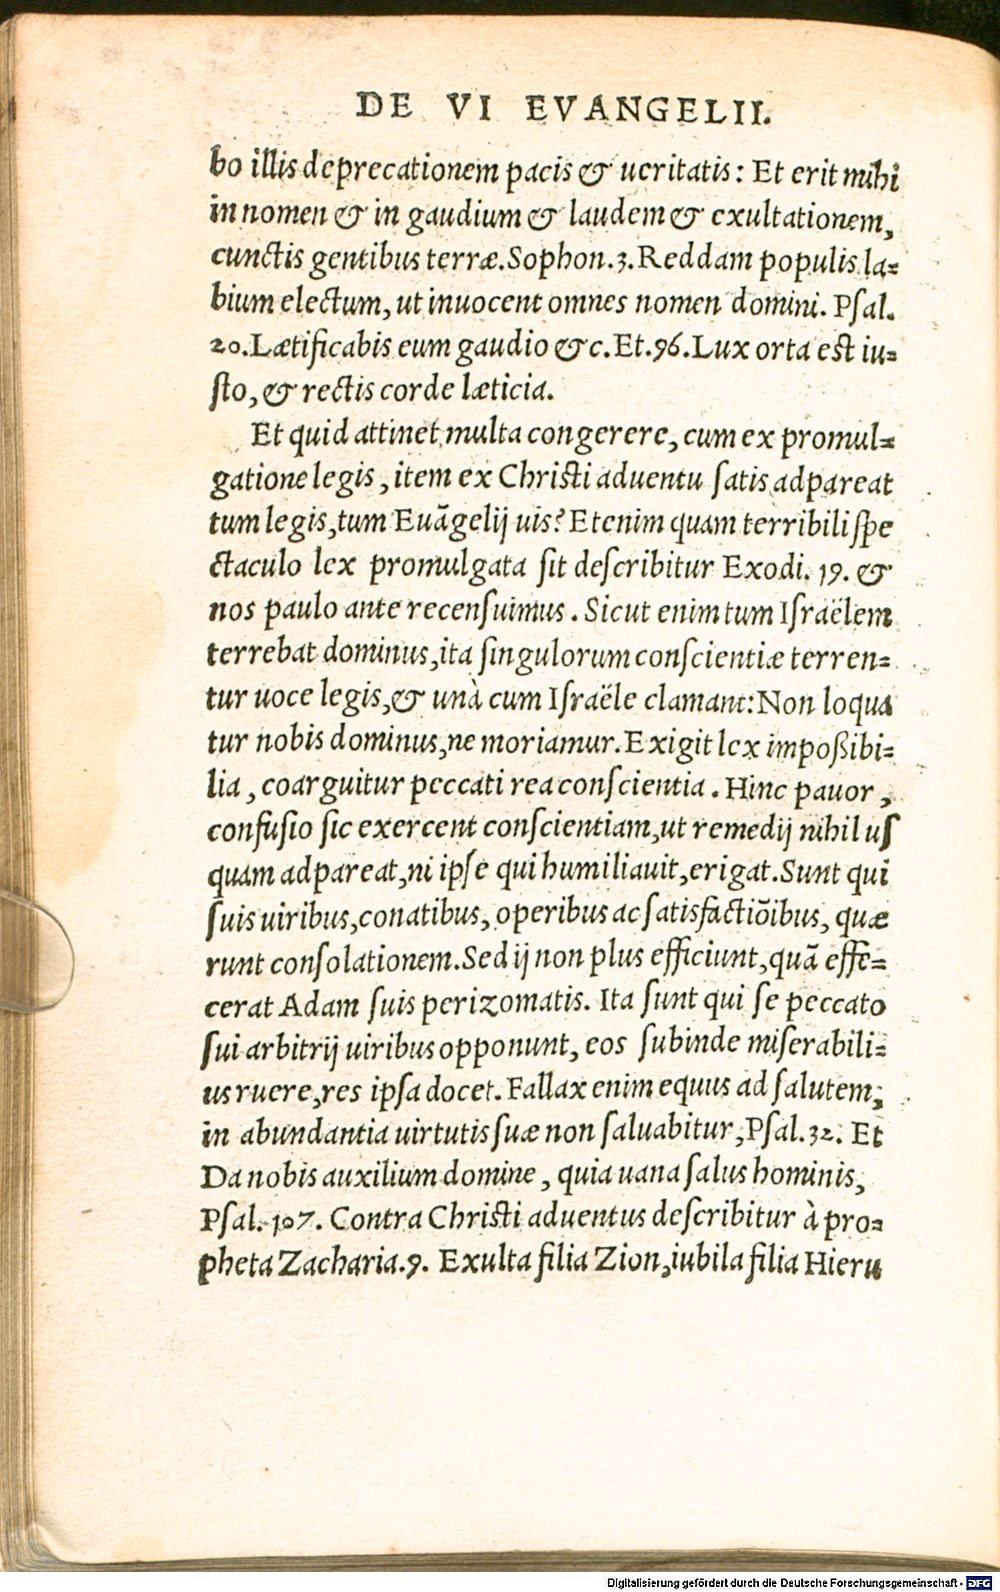 DE VI EVANGELII.
bo illis deprecationem pacis & ueritatis: Et erit mihi
in nomen & in gaudium & laudem & exultationem,
cunctis gentibus terræ. Sophon. 3. Reddam populis la=
bium electum, ut inuocent omnes nomen domini. Psal.
20. Lætificabis eum gaudio &c. Et. 96. Lux orta est iu=
sto, & rectis corde læticia.
Et quid attinet multa congerere, cum ex promul=
gatione legis, item ex Christi aduentu satis adpareat
tum legis, tum Euāgelij uis? Etenim quam terribili spe
ctaculo lex promulgata sit describitur Exodi. 19. &
nos paulo ante recensuimus. Sicut enim tum Israëlem
terrebat dominus, ita singulorum conscientiæ terren=
tur uoce legis, & unà cum Israële clamant: Non loqua
tur nobis dominus, ne moriamur. Exigit lex impoßibi=
lia, coarguitur peccati rea conscientia. Hinc pauor,
confusio sic exercent conscientiam, ut remedij nihil us
quam adpareat, ni ipse qui humiliauit, erigat. Sunt qui
suis uiribus, conatibus, operibus ac satisfactiōibus, quæ
runt consolationem. Sed ij non plus efficiunt, quā effe=
cerat Adam suis perizomatis. Ita sunt qui se peccato
sui arbitrij uiribus opponunt, eos subinde miserabili=
us ruere, res ipsa docet. Fallax enim equus ad salutem;
in abundantia uirtutis suæ non saluabitur, Psal. 32. Et
Da nobis auxilium domine, quia uana salus hominis,
Psal. 107. Contra Christi aduentus describitur à pro=
pheta Zacharia. 9. Exulta filia Zion, iubila filia Hieru
Digitalisierung gefördert durch die Deutsche Forschungsgemeinschaft - DFG